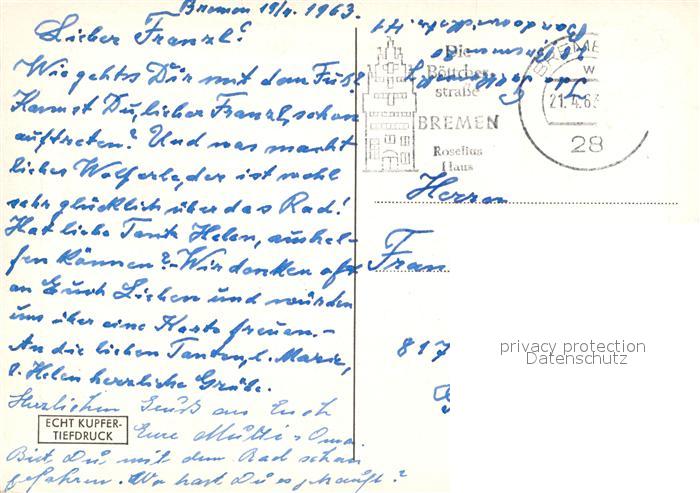 Bremen 19/4. 1963.
Lieber Franzl!
Wie gehts Dir mit dem Fuß?
Kannst Du, lieber Franzl, schon
auftreten? Und was macht
lieber Wolferle, der ist wohl
sehr glücklich über das Rad!
Hat liebe Tante Helen, aushel-
fen können? - Wir denken oft
an Euch Lieben und würden
uns über eine Karte freuen. -
An die lieben Tanten, l. Marie,
l. Helen herzliche Grüße.
Herzlichen Gruß an Euch
Eure Mutti + Oma.
Bist Du mit dem Rad schon
gefahren. Wo hast Du es gekauft?
ECHT KUPFER-
TIEFDRUCK
Die
Böttcher-
straße
BREMEN
Roselius
Haus
21.4.63
28
Herrn
Fran
817
privacy protection
Datenschutz